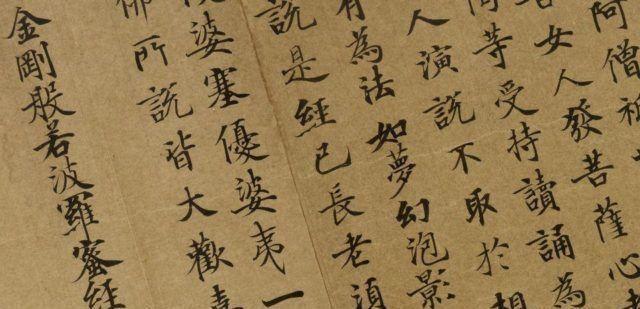 阿僧祇
女人發菩薩心者
等受持讀誦為
人演說不取於相
有為法如夢幻泡影
說是經已長老須
婆塞優婆夷一
佛所說皆大歡喜
金剛般若波羅蜜經